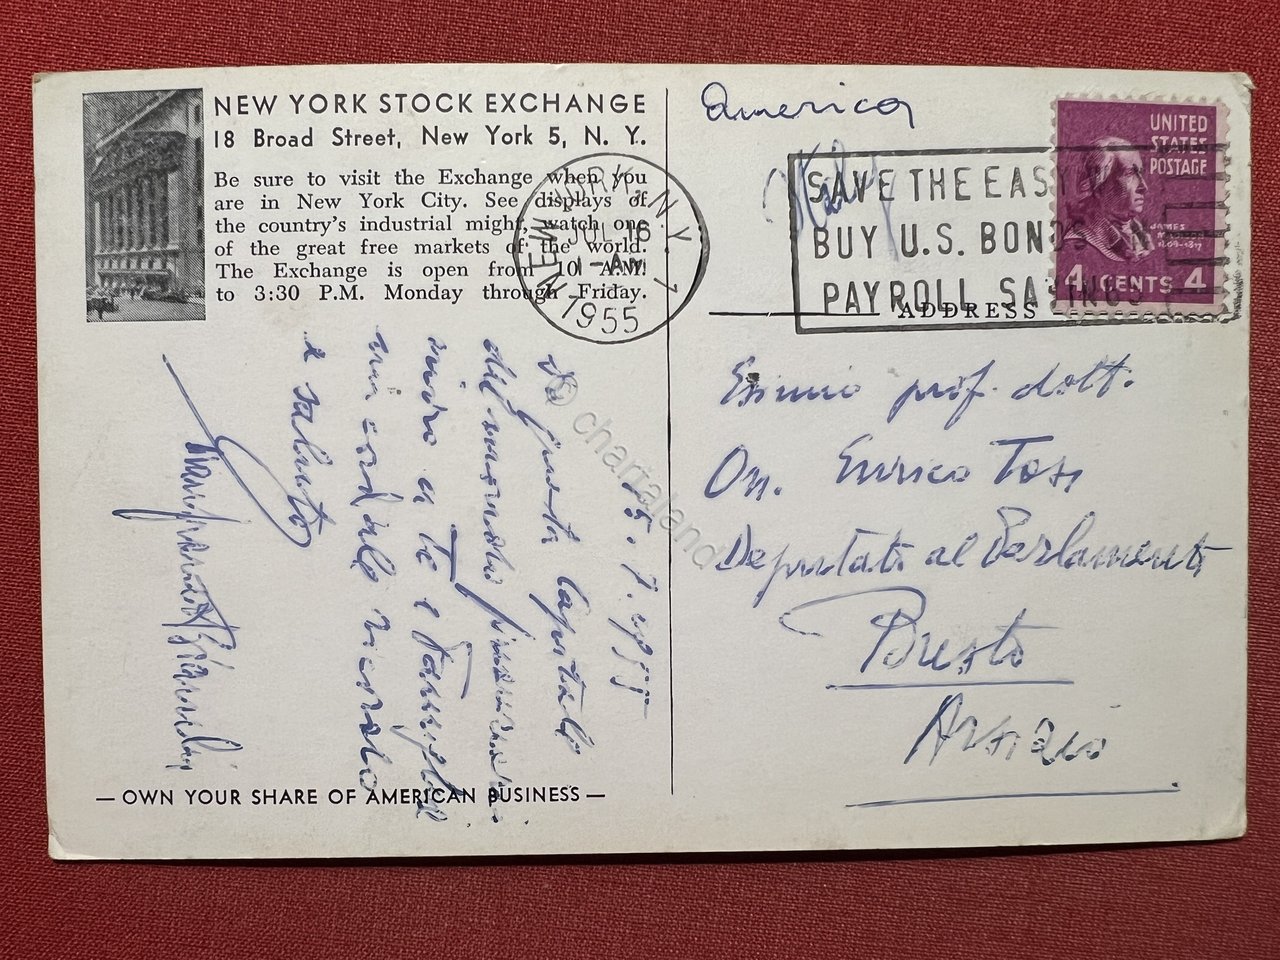 NEW YORK STOCK EXCHANGE
18 Broad Street, New York 5, N. Y.
Be sure to visit the Exchange when you
are in New York City. See displays of
the country's industrial might, watch one
of the great free markets of the world.
The Exchange is open from 10 A.M.
to 3:30 P.M. Monday through Friday.
NEW YORK, N.Y. 1
JUL 16
1-AM
1955
America
Italy
SAVE THE EASY
BUY U.S. BONDS ON
PAYROLL SAVINGS
UNITED
STATES
POSTAGE
JAMES
1809-1817
4 CENTS 4
ADDRESS
prof. dott.
On. Enrico
Deputato al Parlamento
15.7.1955
Da questa capitale
del mondo
a te e
cordiale ricordo
e saluto
© chartaland
— OWN YOUR SHARE OF AMERICAN BUSINESS —